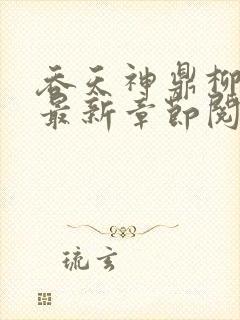 吞天神鼎柳
最新章节阅
琉玄